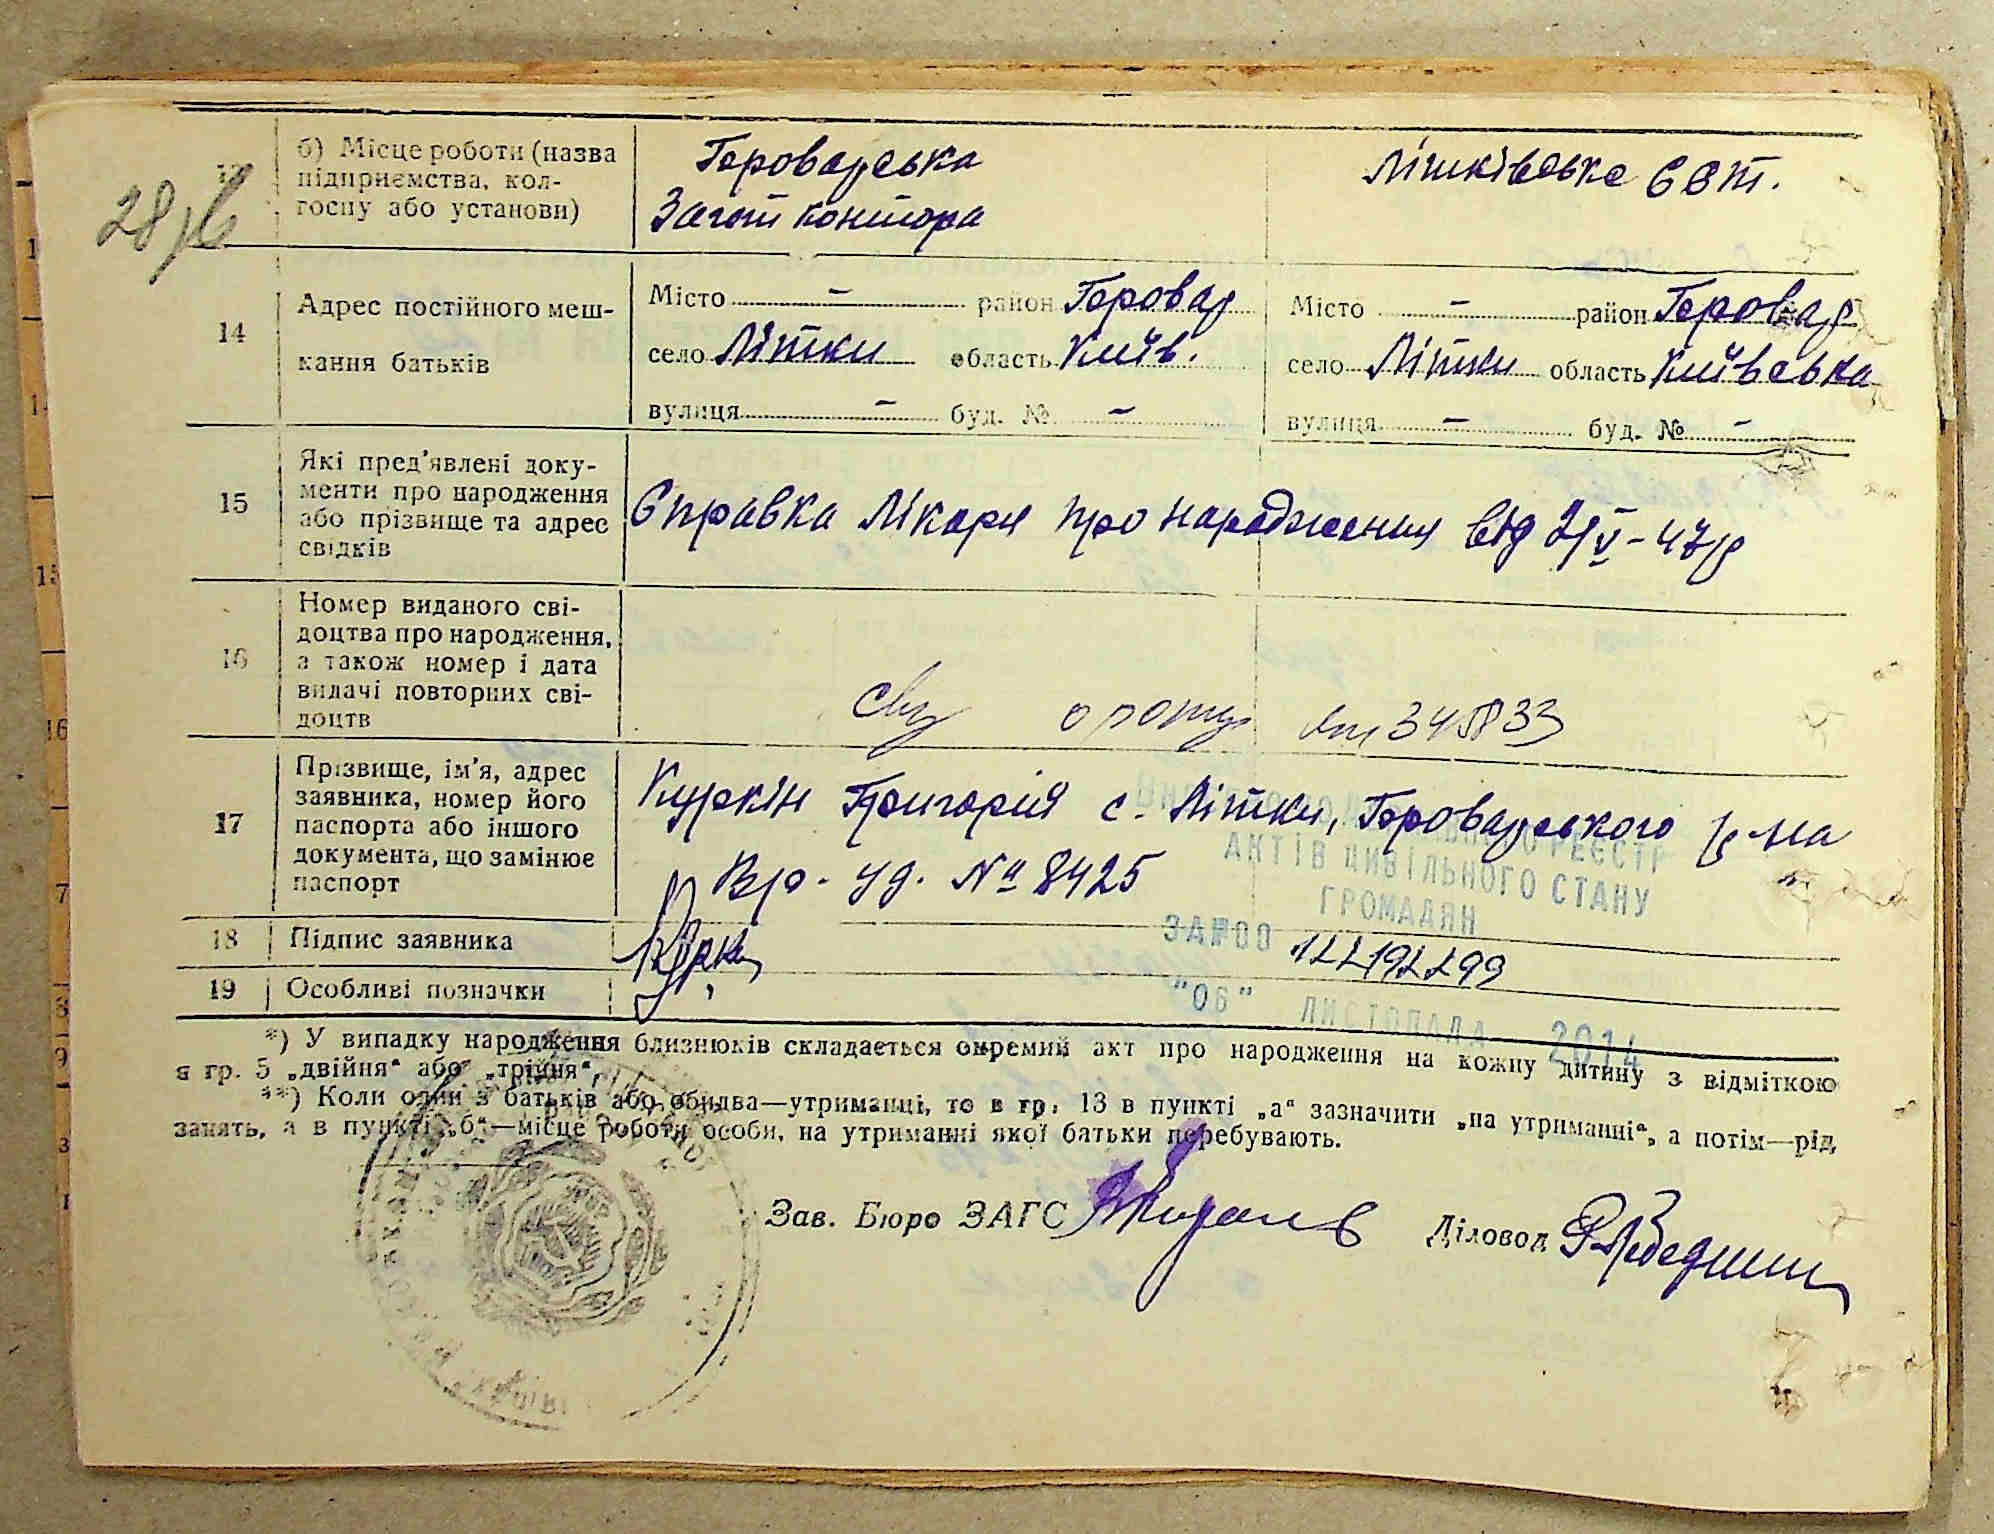 28/6
13
б) Місце роботи (назва
підприємства, кол-
госпу або установи)
Броварська
Загот контора
Літківське ССТ.
14
Адрес постійного меш-
кання батьків
Місто - район Бровар
село Літки область Київ.
вулиця - буд. № -
Місто - район Бровар
село Літки область Київська
вулиця - буд. № -
15
Які пред'явлені доку-
менти про народження
або прізвище та адрес
свідків
Справка Лікаря про народження від 2/V-47р
16
Номер виданого сві-
доцтва про народження,
а також номер і дата
видачі повторних сві-
доцтв
17
Прізвище, ім'я, адрес
заявника, номер його
паспорта або іншого
документа, що замінює
паспорт
Куркін Григорій с. Літки, Броварського р-на
Вр. уд. № 8425
РЕЄСТР
АКТІВ ЦИВІЛЬНОГО СТАНУ
ГРОМАДЯН
ЗА №00
"06" ЛИСТОПАДА 2014
18
Підпис заявника
19
Особливі позначки
*) У випадку народження близнюків складається окремий акт про народження на кожну дитину з відміткою
я гр. 5 „двійня“ або „трійня“.
**) Коли один з батьків або обидва—утриманці, то в гр. 13 в пункті „а“ зазначити „на утриманні“, а потім—рід
занять, а в пункті „б“—місце роботи особи, на утриманні якої батьки перебувають.
Зав. Бюро ЗАГС
Діловод